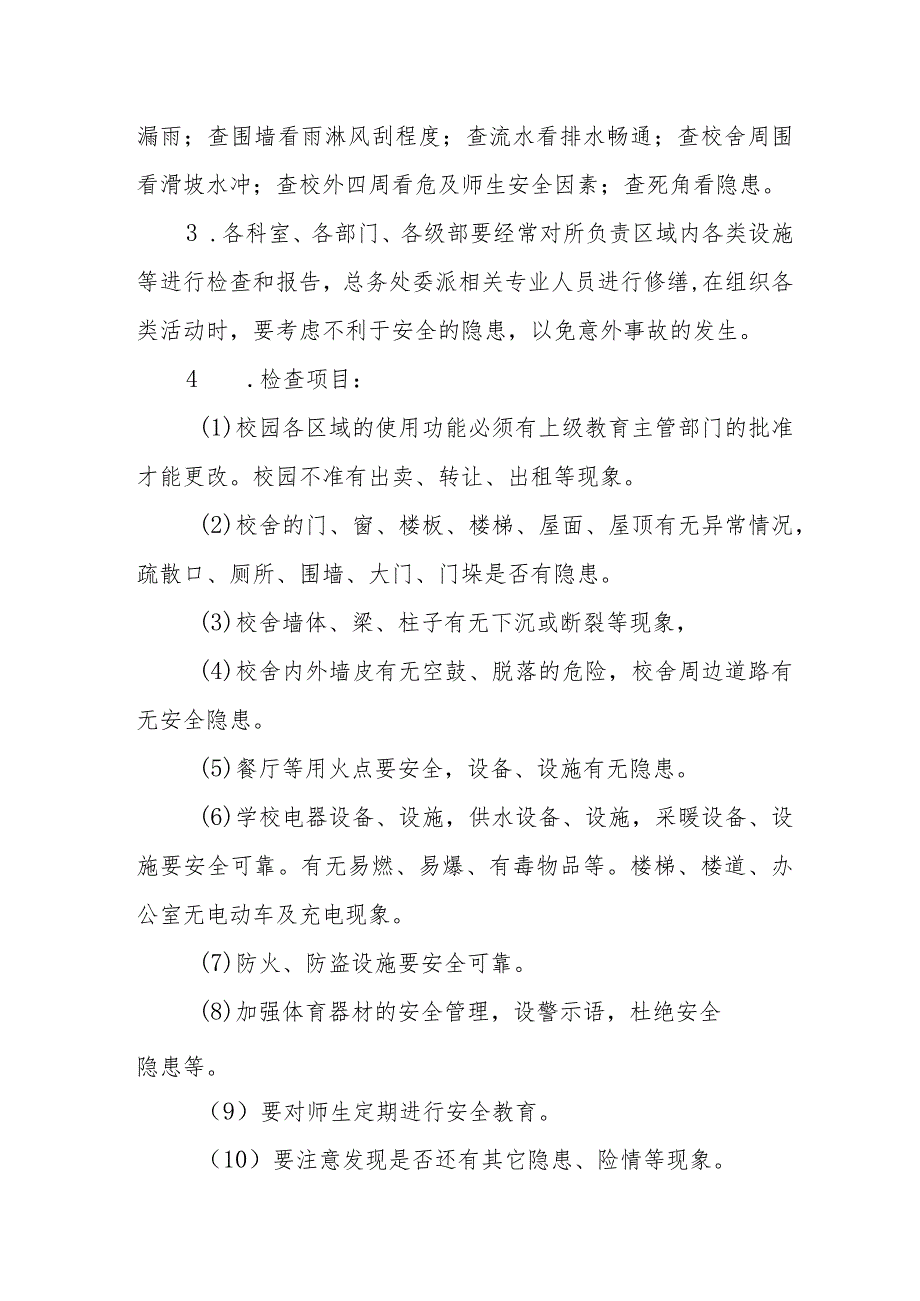 漏雨；查围墙看雨淋风刮程度；查流水看排水畅通；查校舍周围
看滑坡水冲；查校外四周看危及师生安全因素；查死角看隐患。
3 .各科室、各部门、各级部要经常对所负责区域内各类设施
等进行检查和报告，总务处委派相关专业人员进行修缮,在组织各
类活动时，要考虑不利于安全的隐患，以免意外事故的发生。
4 .检查项目：
(1)校园各区域的使用功能必须有上级教育主管部门的批准
才能更改。校园不准有出卖、转让、出租等现象。
(2)校舍的门、窗、楼板、楼梯、屋面、屋顶有无异常情况，
疏散口、厕所、围墙、大门、门垛是否有隐患。
(3)校舍墙体、梁、柱子有无下沉或断裂等现象，
(4)校舍内外墙皮有无空鼓、脱落的危险，校舍周边道路有
无安全隐患。
(5)餐厅等用火点要安全，设备、设施有无隐患。
(6)学校电器设备、设施，供水设备、设施，采暖设备、设
施要安全可靠。有无易燃、易爆、有毒物品等。楼梯、楼道、办
公室无电动车及充电现象。
(7)防火、防盗设施要安全可靠。
(8)加强体育器材的安全管理，设警示语，杜绝安全
隐患等。
（9）要对师生定期进行安全教育。
（10）要注意发现是否还有其它隐患、险情等现象。